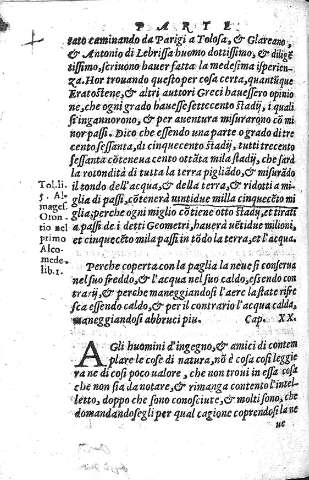 PARTE
tato caminando da Parigi a Tolosa, & Glareano,
& Antonio di Lebrissa huomo dottissimo, & diligẽ
tissimo, scriuono hauer fatta la medesima isperien-
za. Hor trouando questo per cosa certa, quantũque
Eratostene, & altri auttori Greci hauessero opinio
ne, che ogni grado hauesse settecento stadij, i quali
si ingannorono, & per auentura misurarono cõ mi
nor passi. Dico che essendo una parte o grado di tre
cento sessanta, di cinquecento stadij, tutti trecento
sessanta cõteneua cento ottãta mila stadij, che sarà
la rotondità di tutta la terra pigliãdo, & misurãdo
il tondo dell'acqua, & della terra, & ridotti a mi-
glia di passi, cõtenerà uintidue milla cinquecẽto mi
glia; perche ogni miglio cõtiene otto stadij, et tirati
a passi de i detti Geometri, hauerà uẽtidue milioni,
et cinquecẽto mila passi in tõdo la terra, et l'acqua.
Tol. li.
5. Al-
mages.
Oron-
tio nel
primo
Alco-
mede.
lib. 1.
Perche coperta con la paglia la neue si conserua
nel suo freddo, & l'acqua nel suo caldo, essendo con
trarij, & perche maneggiandosi l'aere la state rifre
sca essendo caldo, & per il contrario l'acqua calda,
maneggiandosi abbruci piu. Cap. XX.
AGli huomini d'ingegno, & amici di contem
plare le cose di natura, nõ è cosa così leggie
ra ne di così poco ualore, che non troui in essa cosa
che non sia da notare, & rimanga contento l'intel-
letto, doppo che sono conosciute, & molti sono, che
domandandosegli per qual cagione coprendosi la ne
ue